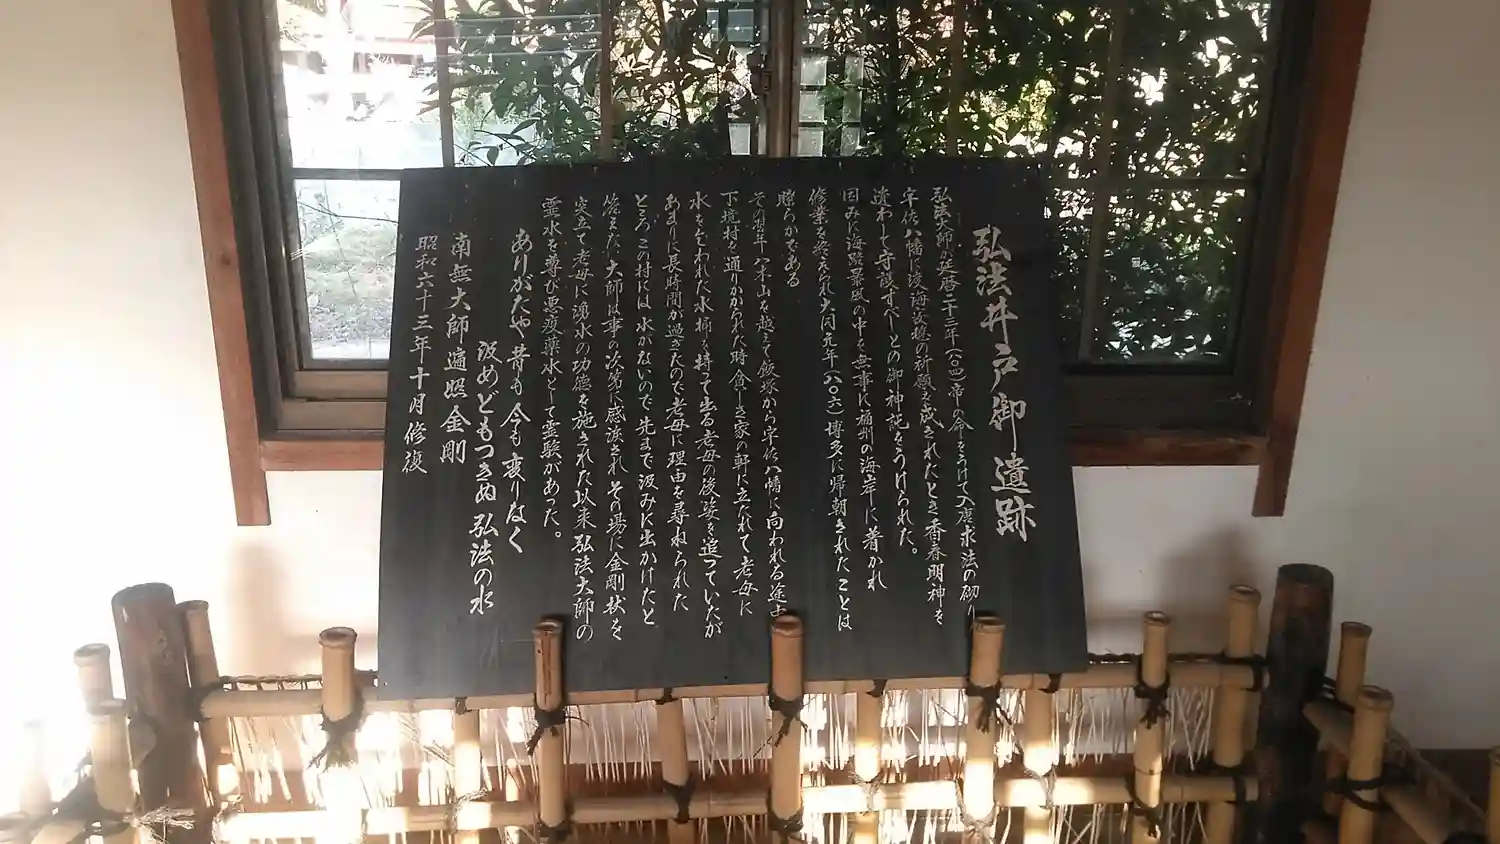 弘法井戸御遺跡
弘法大師が延暦二十三年(八〇四)帝の命をうけて入唐求法の砌り
宇佐八幡に渡海安穏の祈願を成されたとき香春明神を
遣わして守護すべしとの御神託をうけられた。
因みに海路暴風の中を無事に福州の海岸に着かれ
修業を終えられ大同元年(八〇六)博多に帰朝されたことは
瞭らかである
その翌年八木山を越えて飯塚から宇佐八幡に向われる途中
下境村を通りかかられた時貧しき家の軒に立たれて老母に
水をそわれた水桶を持て出る老母の後姿を追っていたが
あまりに長時間が過ぎたので老母に理由を尋ねられた
ところこの村には水がないので先まで汲みに出かけたと
答えた、大師は事の次第に感涙されその場に金剛杖を
突立て老母に湧水の功徳を施された以来弘法大師の
霊水を尊び悪疫の薬水として霊験があった。
ありがたや昔も今も変りなく
汲めどもつきぬ弘法の水
南無大師遍照金剛
昭和六十三年十月修復